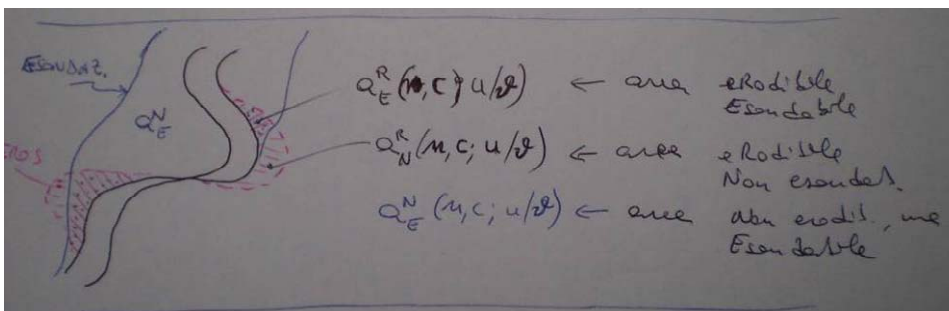 ESONDAZ.
EROS
a_E^N
a_E^R (n, c; u/ϑ) ← area eRodibile
Esondabile
a_N^R (n, c; u/ϑ) ← area eRodibile
Non esondab.
a_E^N (n, c; u/ϑ) ← area Non erodib., ma
Esondabile